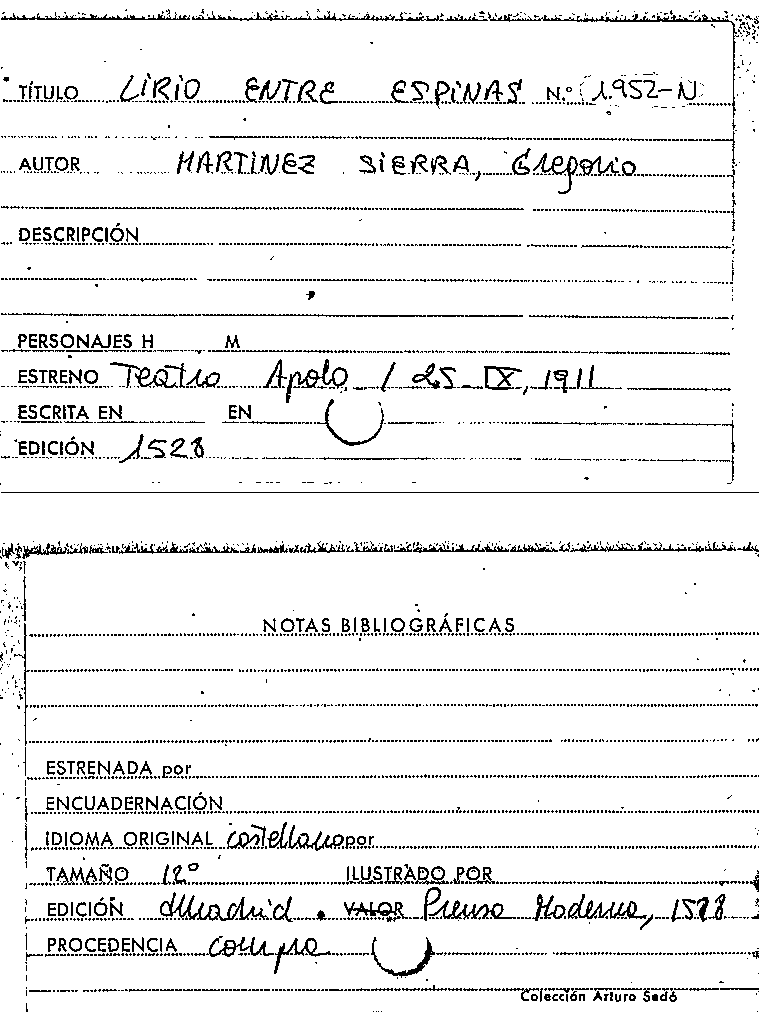 TÍTULO LIRIO ENTRE ESPINAS N.º (1.952-N)
AUTOR MARTINEZ SIERRA, Gregorio
DESCRIPCIÓN
PERSONAJES H M
ESTRENO Teatro Apolo / 25-IX, 1911
ESCRITA EN EN
EDICIÓN 1528
NOTAS BIBLIOGRÁFICAS
ESTRENADA por
ENCUADERNACIÓN
IDIOMA ORIGINAL castellano por
TAMAÑO 12º ILUSTRADO POR
EDICIÓN Madrid. VALOR Prensa Moderna, 1928
PROCEDENCIA compra
Colección Arturo Sedó